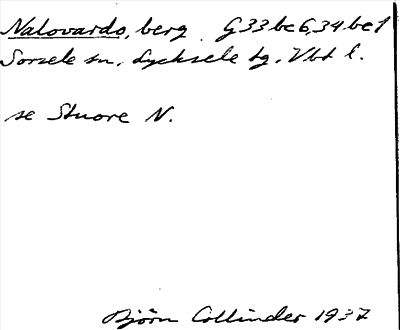 Nalovardo, berg. G33bc6,34bc1
Sorsele sn, Lycksele tg, Vbt l.
se Stuore N.
Björn Collinder 1937